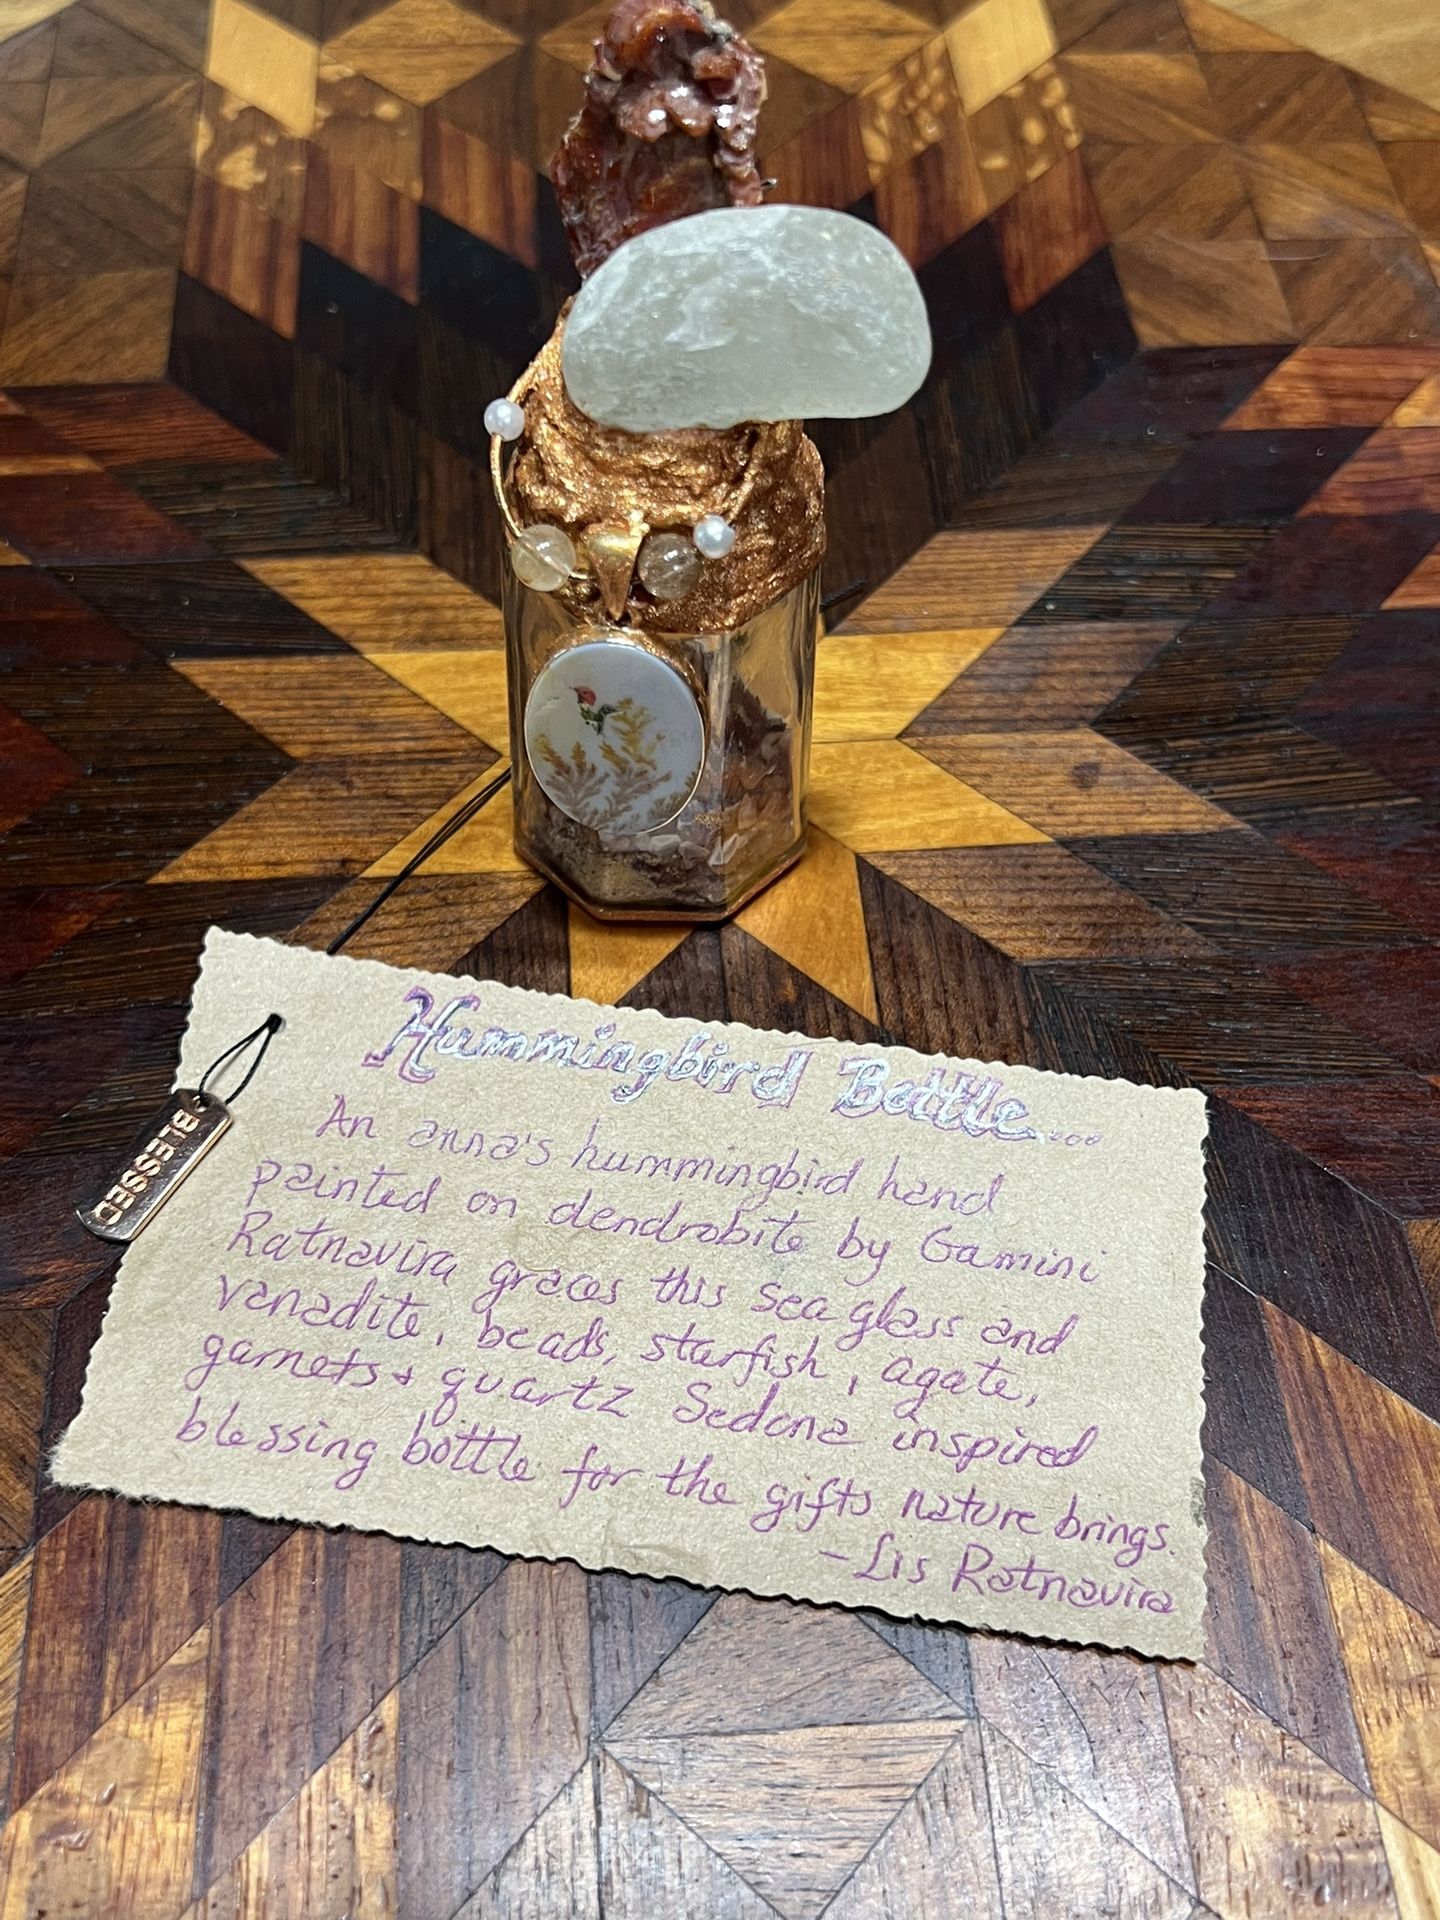 Hummingbird Bottle...
An anna's hummingbird hand
painted on dendrobite by Gamini
Ratnavira graces this sea glass and
vanadite, beads, starfish, agate,
garnets & quartz Sedona inspired
blessing bottle for the gifts nature brings.
-Lis Ratnavira
BLESSED